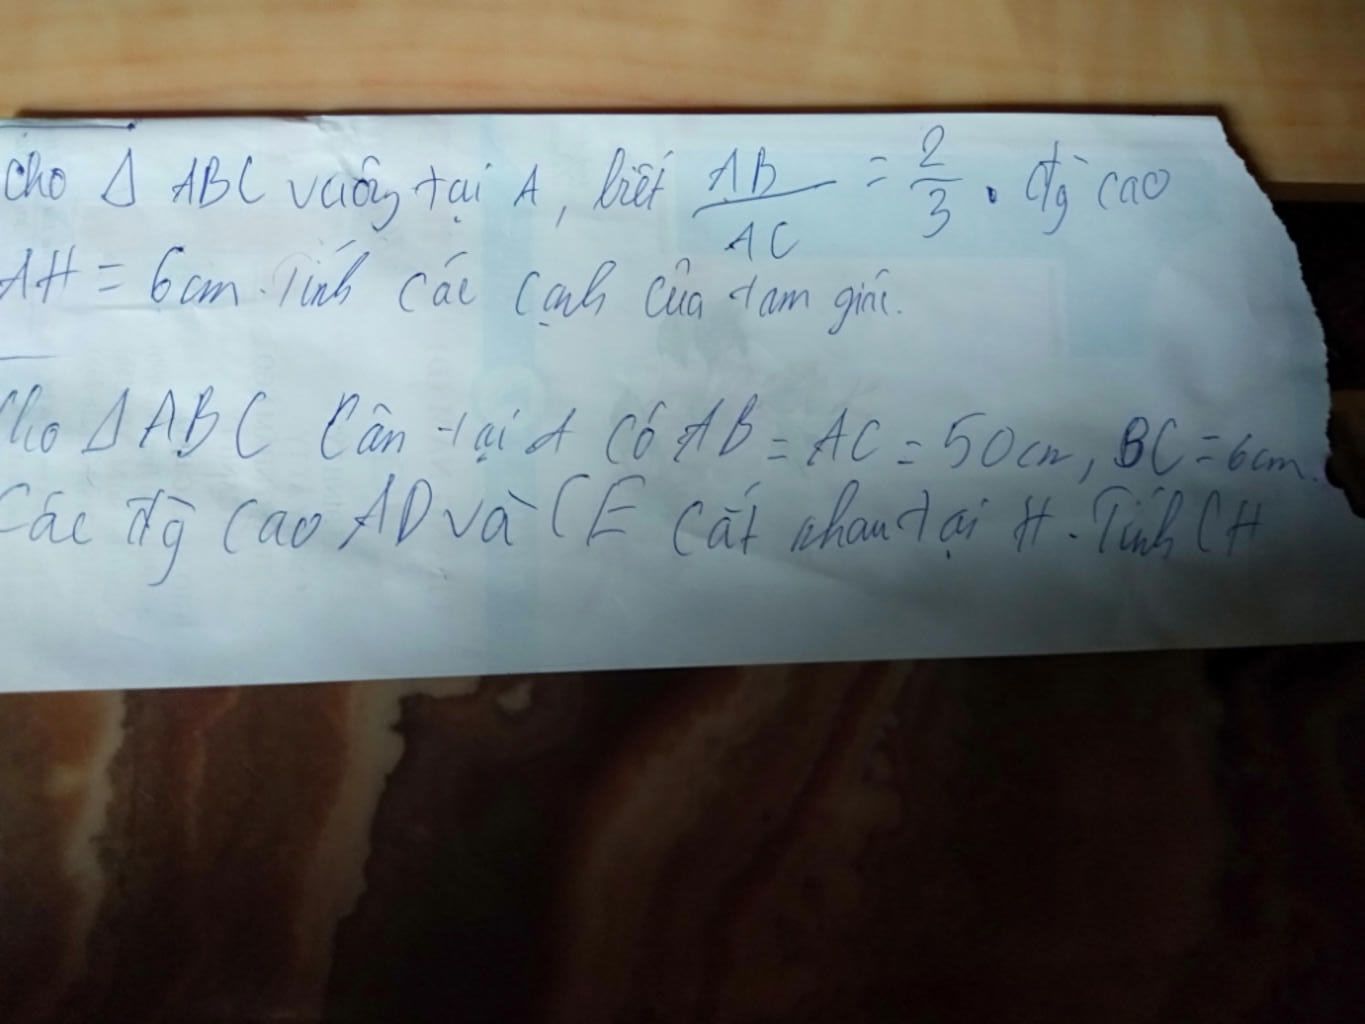 Cho Δ ABC vuông tại A, biết AB/AC = 2/3. đg̀ cao
AH = 6cm. Tính các cạnh của tam giác.
Cho Δ ABC Cân tại A Có AB = AC = 50cm, BC = 6cm.
Các đg̀ cao AD và CE cắt nhau tại H. Tính CH